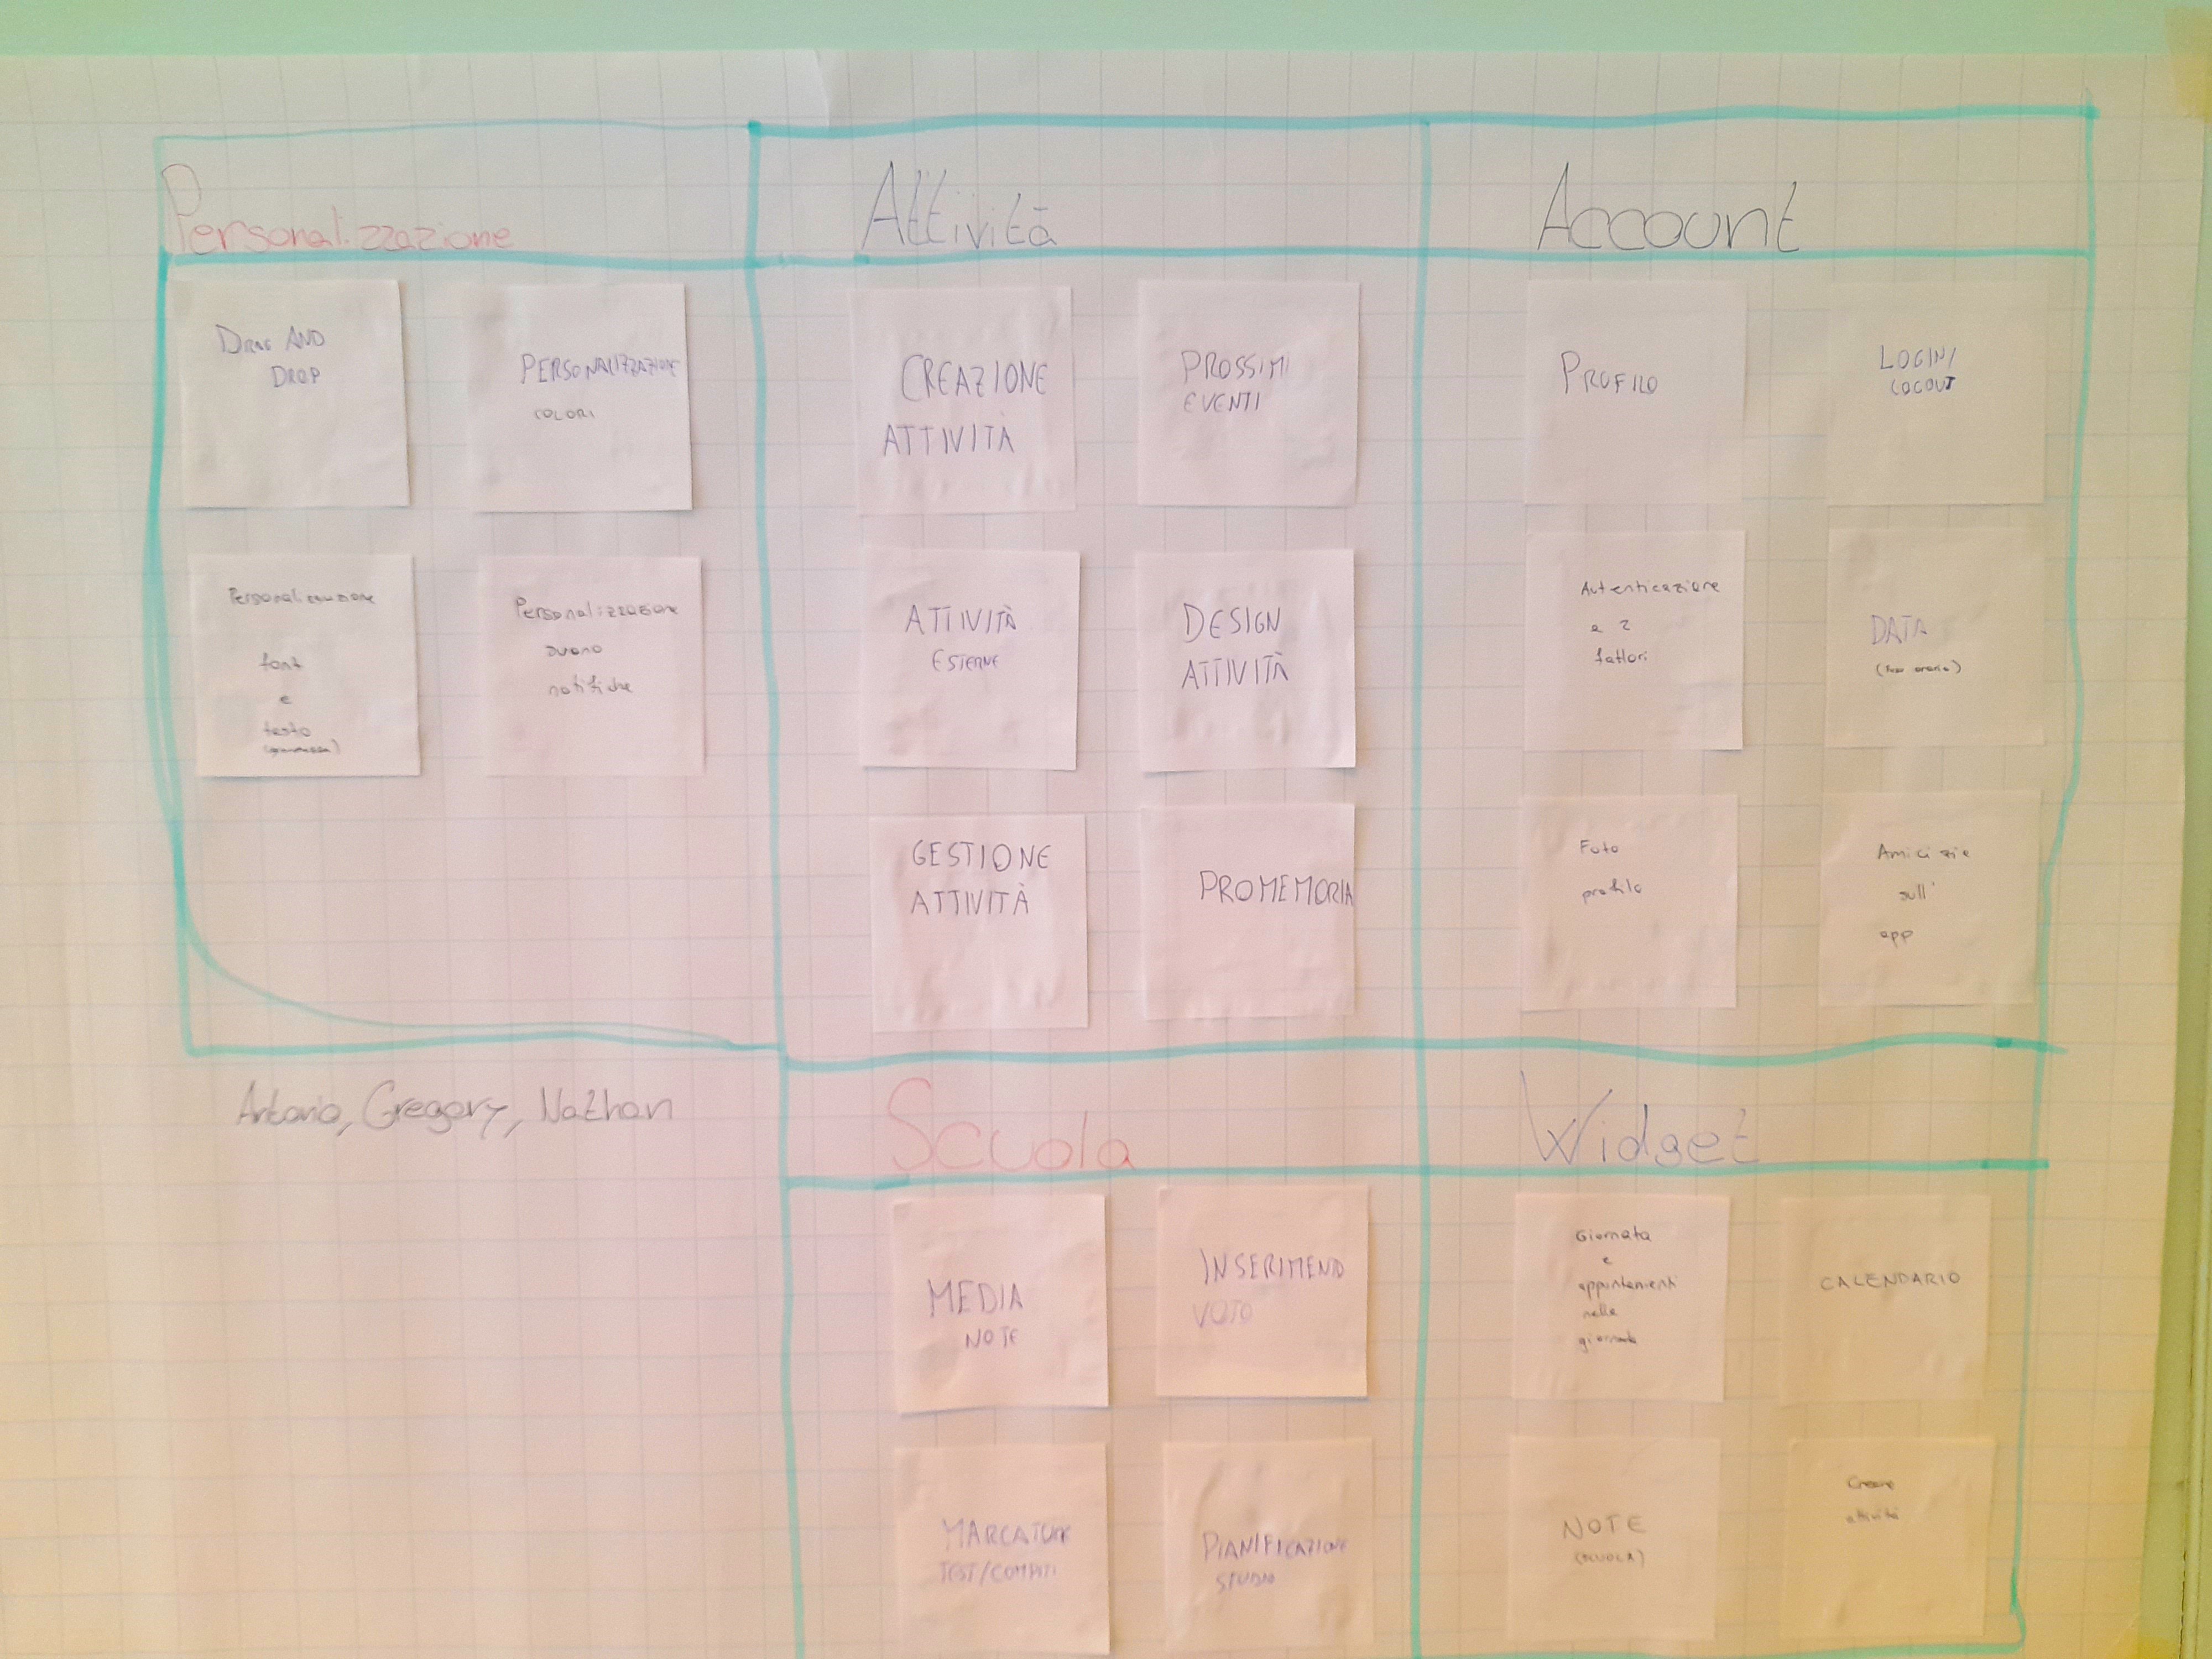 Personalizzazione
DRAG AND
DROP
PERSONALIZZAZIONE
COLORI
Personalizzazione
font
e
testo
Personalizzazione
suono
notifiche
Attività
CREAZIONE
ATTIVITÀ
PROSSIMI
EVENTI
ATTIVITÀ
ESTERNE
DESIGN
ATTIVITÀ
GESTIONE
ATTIVITÀ
PROMEMORIA
Account
PROFILO
LOGIN/
LOGOUT
Autenticazione
a 2
fattori
DATA
(fuso orario)
Foto
profilo
Amicizie
sull'
app
Antonio, Gregory, Nathan
Scuola
MEDIA
NOTE
INSERIMENTO
VOTO
MARCATURA
TEST/COMPITI
PIANIFICAZIONE
STUDIO
Widget
Giornata
e
appuntamenti
nella
giornata
CALENDARIO
NOTE
(SCUOLA)
Creare
attività